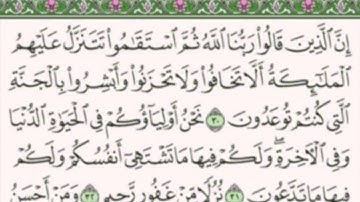 إِنَّ الَّذِينَ قَالُوا رَبُّنَا اللَّهُ ثُمَّ اسْتَقَامُوا تَتَنَزَّلُ عَلَيْهِمُ
الْمَلَائِكَةُ أَلَّا تَخَافُوا وَلَا تَحْزَنُوا وَأَبْشِرُوا بِالْجَنَّةِ
الَّتِي كُنتُمْ تُوعَدُونَ ٣٠ نَحْنُ أَوْلِيَاؤُكُمْ فِي الْحَيَاةِ الدُّنْيَا
وَفِي الْآخِرَةِ وَلَكُمْ فِيهَا مَا تَشْتَهِي أَنفُسُكُمْ وَلَكُمْ
فِيهَا مَا تَدَّعُونَ ٣١ نُزُلًا مِّنْ غَفُورٍ رَّحِيمٍ ٣٢ وَمَنْ أَحْسَنُ